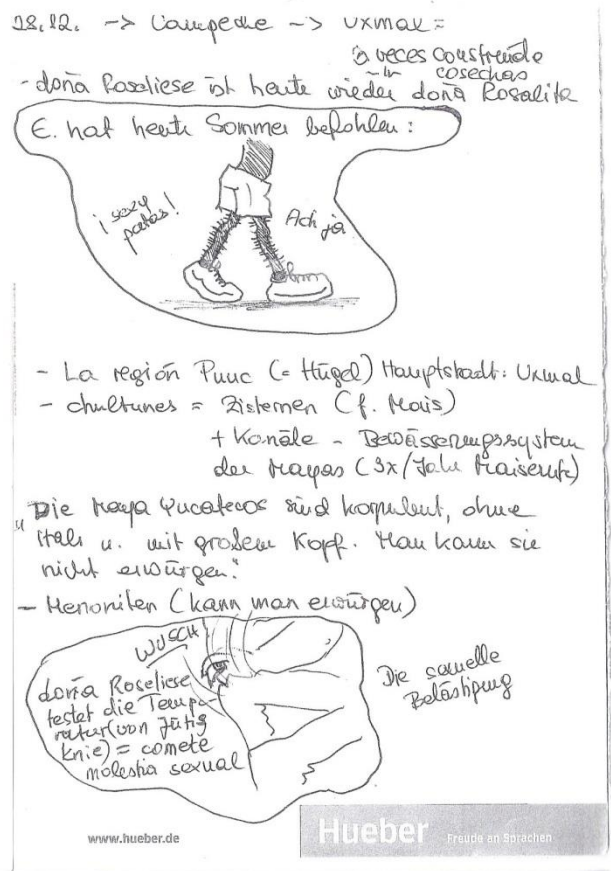 18.12. -> Campeche -> Uxmal =
a veces construide
cosechas
- doña Roseliese ist heute wieder doña Rosalita
E. hat heute Sommer befohlen:
¡sexy
patas!
Ach ja
- La región Puuc (= Hügel) Hauptstadt: Uxmal
- chultunes = Zisternen (f. Mais)
+ Kanäle - Bewässerungssystem
der Mayas (3x/Jahr Maisernte)
"Die Maya Yucatecos sind korpulent, ohne
Hals u. mit großem Kopf. Man kann sie
nicht erwürgen."
- Menoniten (kann man erwürgen)
WUSCH
doña Roseliese
testet die Tempe-
ratur (von
Knie) = comete
molestia sexual
Die schnelle
Belästigung
www.hueber.de
Hueber Freude an Sprachen